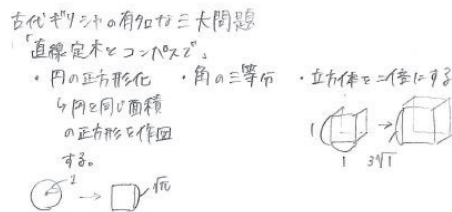 古代ギリシャの有名な三大問題
「直線定木とコンパスで」
・円の正方形化 ・角の三等分 ・立方体を二倍にする
↳円と同じ面積
の正方形を作図
する。
1 → √π
1 1 → 3√1